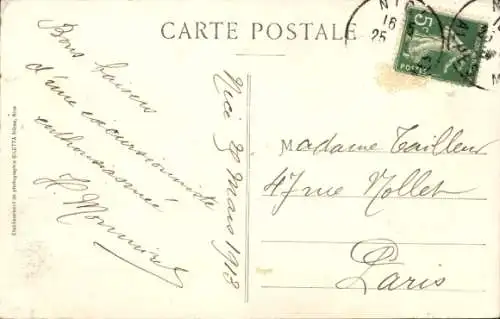 CARTE POSTALE
Bons baisers
d'une excursionniste
enthousiasmée
Nice 28 Mars 1913
Madame Tailleur
47 rue Nollet
Paris
5c
NICE
16
25
POSTES
Etablissement de photographie GILETTA frères, Nice